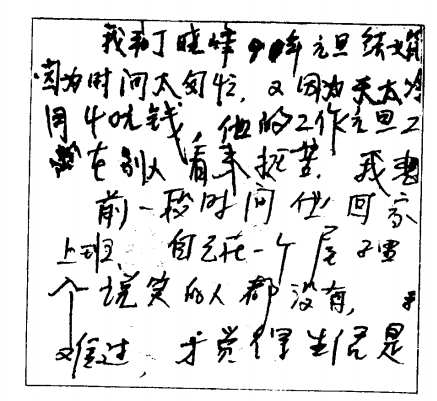 我和丁晓峰90年元旦结婚
因为时间太匆忙,又因为天太冷
用40元钱,他的工作元旦工
在别人看来挺苦.我想
前一段时间他回家
上班、自己在一个屋子里
个说笑的人都没有,
难过,才觉得生活是